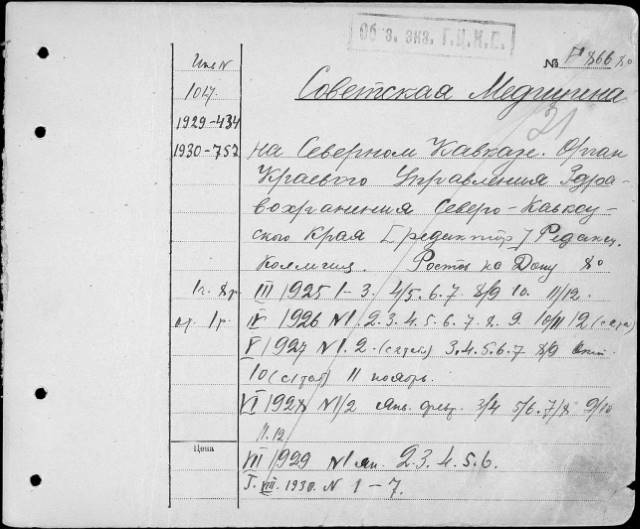 Обяз. экз. Г.Ц.К.П.
№ 866 80
Инв N
Советская Медицина
1017.
21
1929-434
1930-752
на Северном Кавказе. Орган
Краевого Управления Здра-
вохранения Северо-Кавказ-
ского Края [редактор] Редакц.
Коллегия. Ростов на Дону 80
1г. 8р III 1925 1-3. 4/5. 6. 7. 8/9 10. 11/12.
от. 1р. IV 1926 N1. 2. 3. 4. 5. 6. 7. 8. 9. 10/11 12
V 1927 N1. 2. 3. 4. 5. 6. 7 8/9
10 11 ноябрь.
VI 1928 N1/2 Янв. февр. 3/4 5/6. 7/8 9/10
11. 12
Цена
VII 1929 N1 ян. 2. 3. 4. 5. 6.
Г. VIII. 1930. N 1-7.